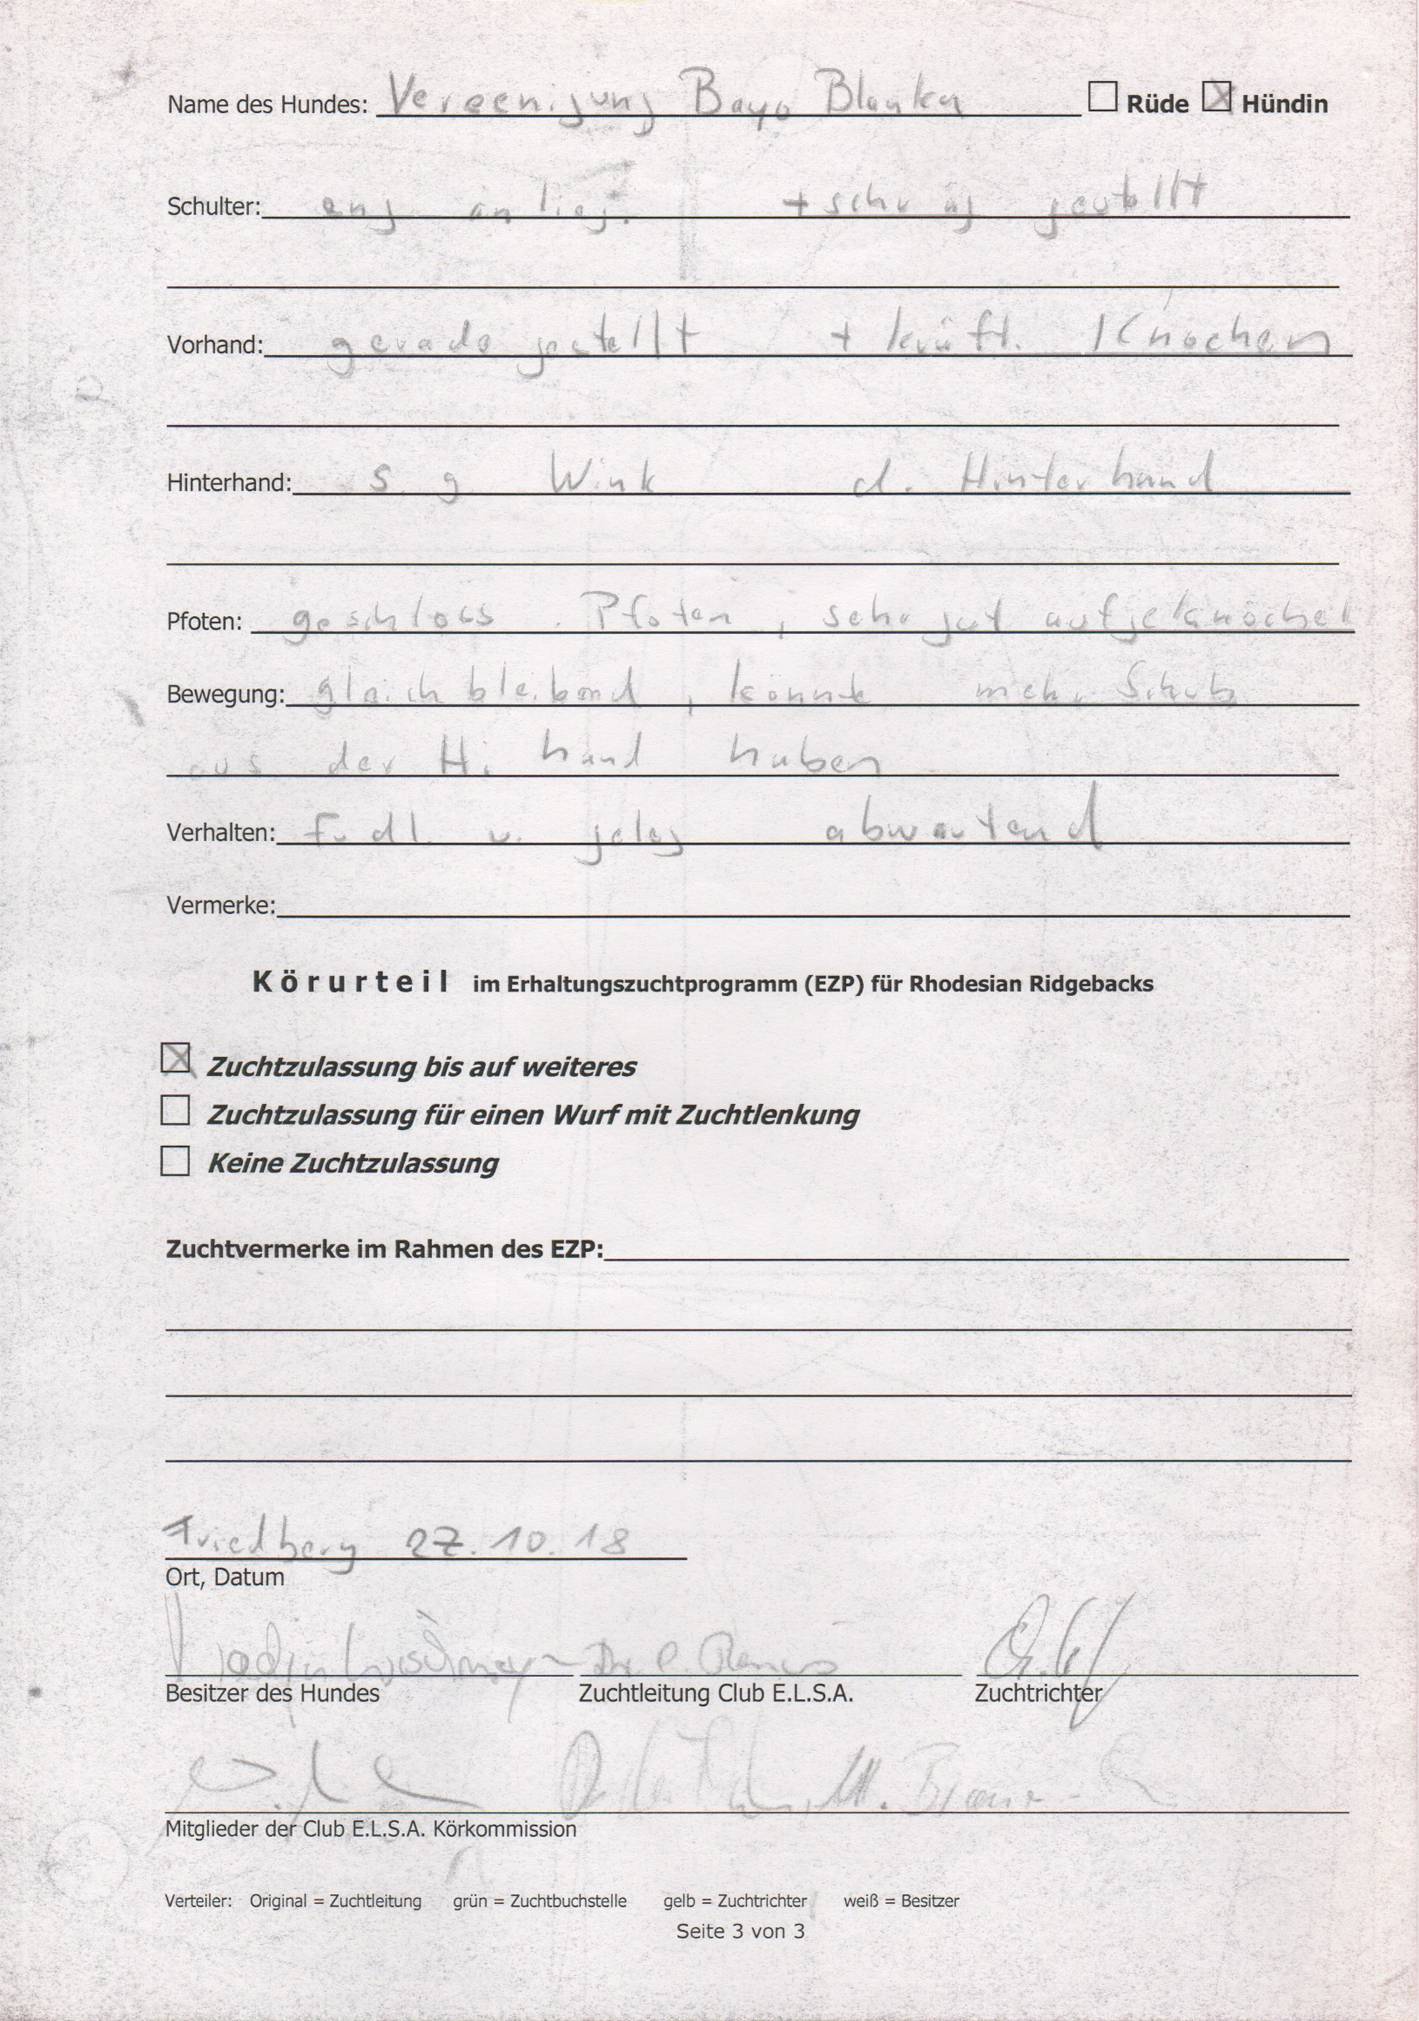 Name des Hundes: Vereenigung Bayo Blanka ☐ Rüde ☒ Hündin
Schulter: eng anlieg. + schräg gestellt
Vorhand: gerade gestellt + kräft. Knochen
Hinterhand: s. g Wink d. Hinterhand
Pfoten: geschloss. Pfoten, sehr gut aufgeknöchel
Bewegung: gleichbleibend, könnte mehr Schub
aus der Hi. hand haben
Verhalten: frdl. u. gelas abwartend
Vermerke:
Körurteil im Erhaltungszuchtprogramm (EZP) für Rhodesian Ridgebacks
☒ Zuchtzulassung bis auf weiteres
☐ Zuchtzulassung für einen Wurf mit Zuchtlenkung
☐ Keine Zuchtzulassung
Zuchtvermerke im Rahmen des EZP:
Friedberg 27.10.18
Ort, Datum
Besitzer des Hundes Zuchtleitung Club E.L.S.A. Zuchtrichter
Mitglieder der Club E.L.S.A. Körkommission
Verteiler: Original = Zuchtleitung grün = Zuchtbuchstelle gelb = Zuchtrichter weiß = Besitzer
Seite 3 von 3